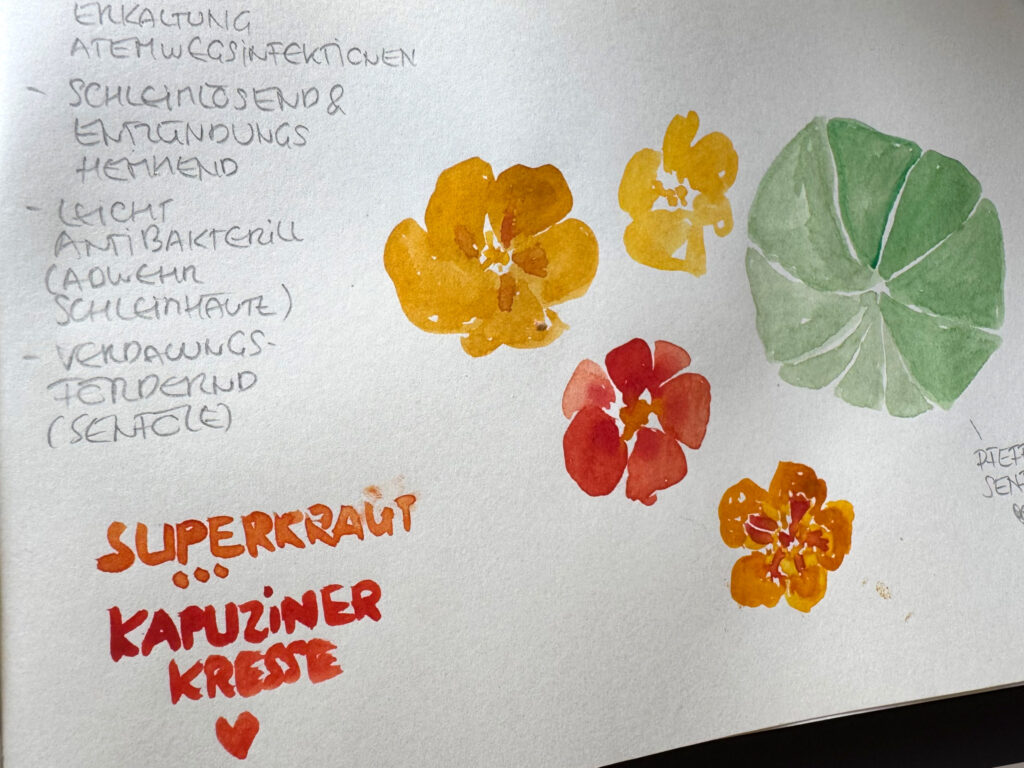 ERKALTUNG
ATEMWEGSiNFEKTIONEN
- SCHLEIMLÖSEND &
ENTZÜNDUNGS
HEMMEND
- LEICHT
ANTIBAKTERILL
(ABWEHR
SCHLEIMHÄUTE)
- VERDAUUNGS-
FÖRDERND
(SENFÖLE)
SUPERKRAUT
...
KAPUZiNER
KRESSE
♥